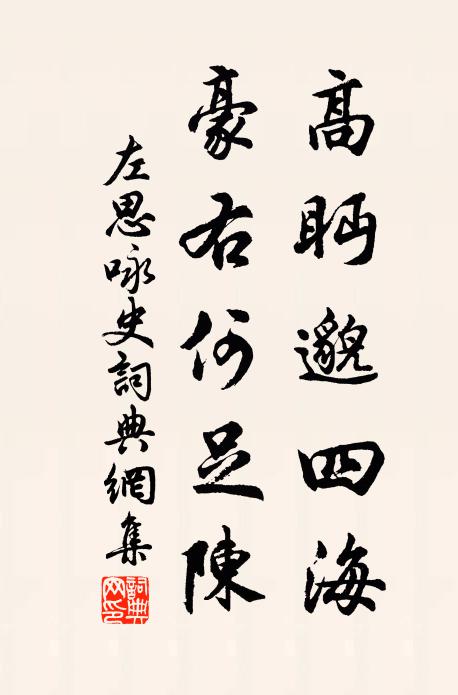 高眄邈四海
豪右何足陳
左思咏史詞典網集
詞典網印